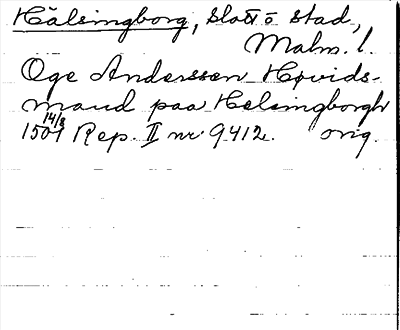 Hälsingborg, slott o stad,
Malm. l.
Oge Anderssen Høvids-
mand paa Helsingborgh
1501 14/8 Rep. II nr 9412. orig.